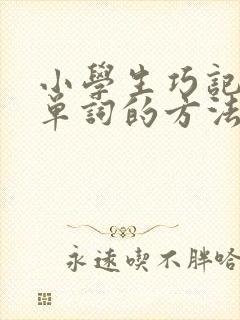 小學生巧記
單詞的方法
永遠喫不胖哈